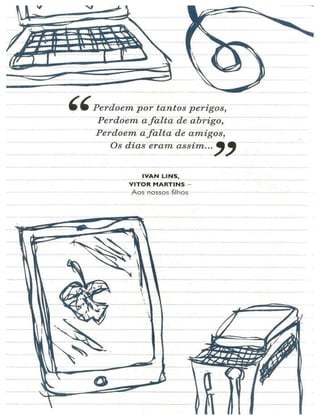 “ Perdoem por tantos perigos,
Perdoem a falta de abrigo,
Perdoem a falta de amigos,
Os dias eram assim... ”
IVAN LINS,
VITOR MARTINS –
Aos nossos filhos